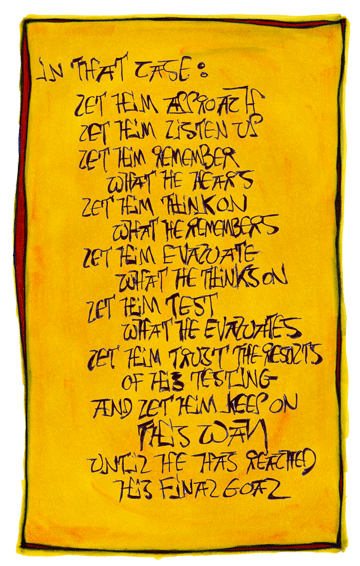 IN THAT CASE:
LET HIM APPROACH
LET HIM LISTEN US
LET HIM REMEMBER
WHAT HE HEARS
LET HIM THINK ON
WHAT HE REMEMBERS
LET HIM EVALUATE
WHAT HE THINKS ON
LET HIM TEST
WHAT HE EVALUATES
LET HIM TRUST THE RESULTS
OF HIS TESTING
AND LET HIM KEEP ON
THIS WAY
UNTIL HE HAS REACHED
HIS FINAL GOAL